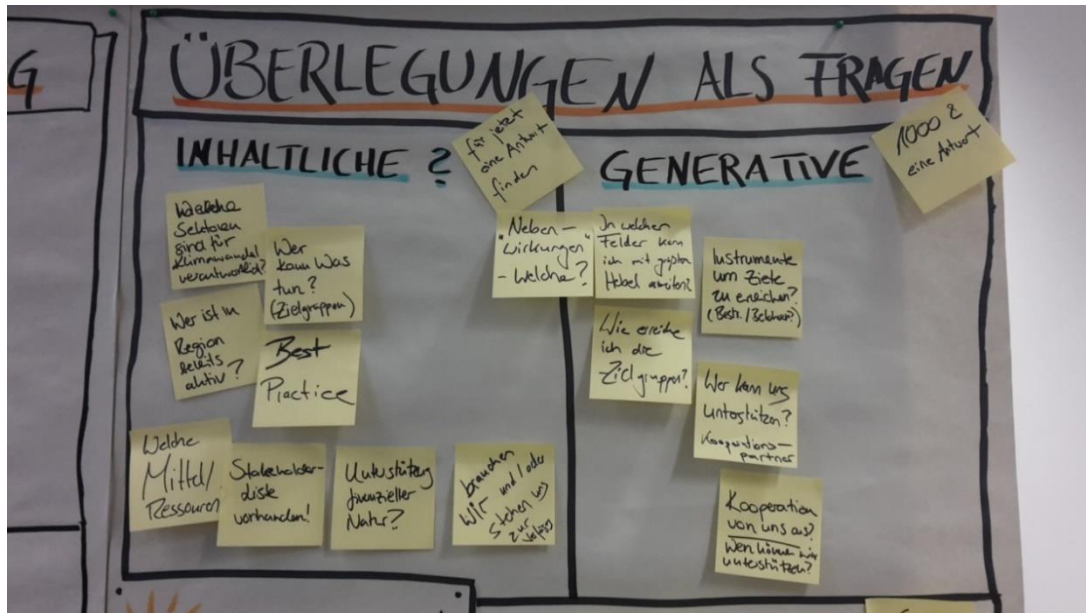 G
ÜBERLEGUNGEN ALS FRAGEN
INHALTLICHE ?
für jetzt
eine Antwort
finden
GENERATIVE
1000 &
eine Antwort
Welche
Sektoren
sind für
Klimawandel
verantwortlich?
Wer
kann was
tun?
(Zielgruppen)
Wer ist in
Region
bereits
aktiv?
Best
Practice
Welche
Mittel/
Ressourcen
Stakeholder-
liste
vorhanden!
Unterstützung
finanzieller
Natur?
brauchen
wir und/oder
stehen uns
zur
"Neben-
wirkungen"
- Welche?
In welchen
Felder kann
ich mit
Hebel
Instrumente
um Ziele
zu erreichen?
Wie erreiche
ich die
Zielgruppen?
Wer kann uns
unterstützen?
Kooperations-
partner
Kooperation
von uns aus?
Wen können wir
unterstützen?